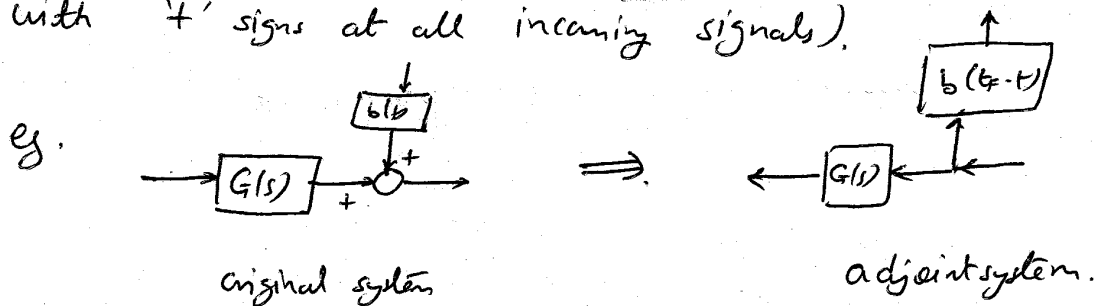 with '+' signs at all incoming signals).
b(t)
b(tF-t)
eg.
G(s)
+
+
⟹.
G(s)
original system
adjoint system.